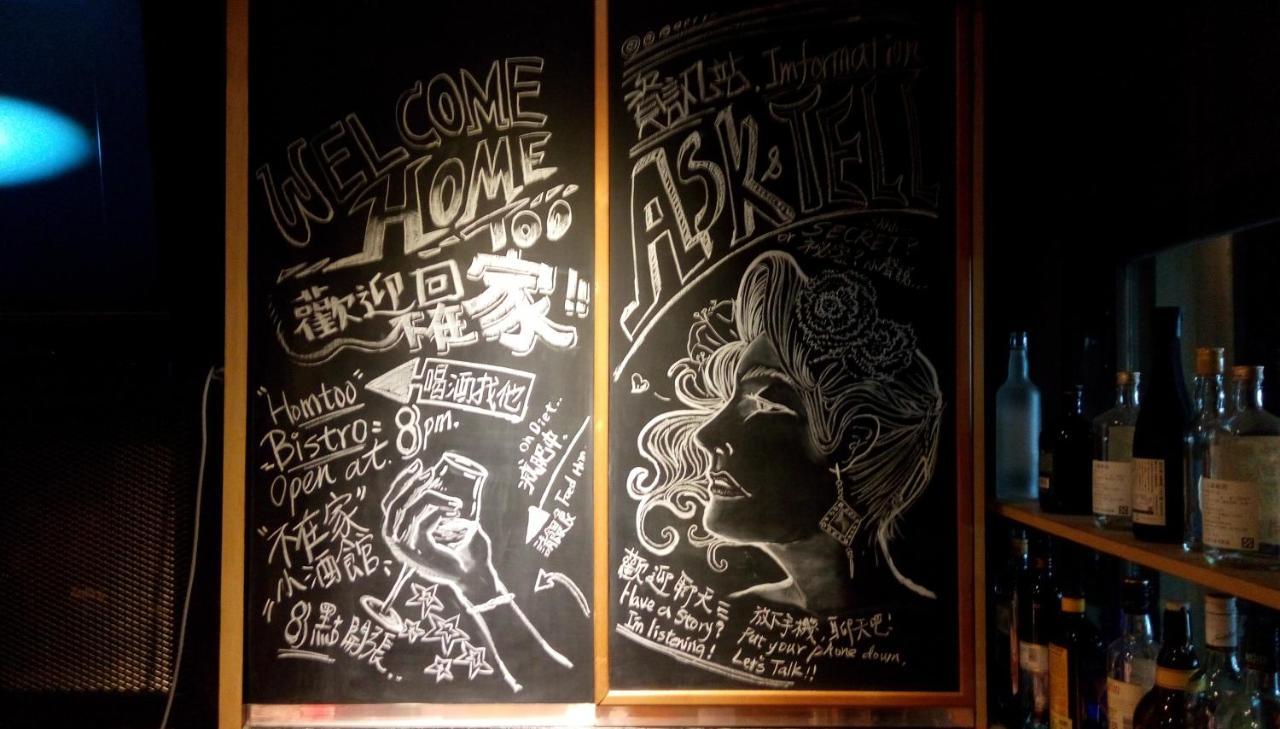 WELCOME
HOME
TOO
歡迎回家!!
不在
喝酒找他
"Homtoo"
"Bistro"
Open at 8pm.
"不在家"
"小酒館"
8點開張..
on Diet..
減肥中.
Feed Him
請餵食
資訊站.Imformation
ASK & TELL
or SECRET?
歡迎聊天
Have a story?
I'm listening!
放下手機,聊天吧!
Put your phone down,
Let's Talk!!